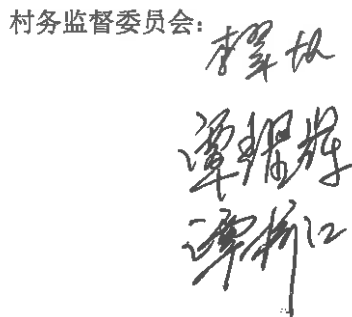 村务监督委员会：
李翠
谭耀辉
谭桥江